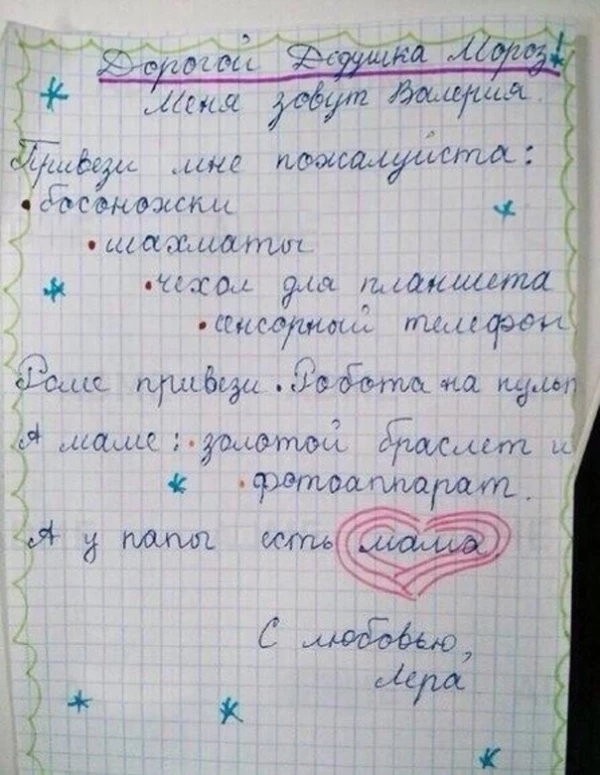 Дорогой Дедушка Мороз!
Меня зовут Валерия.
Привези мне пожалуйста:
• босоножки
• шахматы
• чехол для планшета
• сенсорный телефон
Роме привези • Робота на пульт
А маме: • золотой браслет и
• фотоаппарат.
А у папы есть мама
С любовью,
Лера